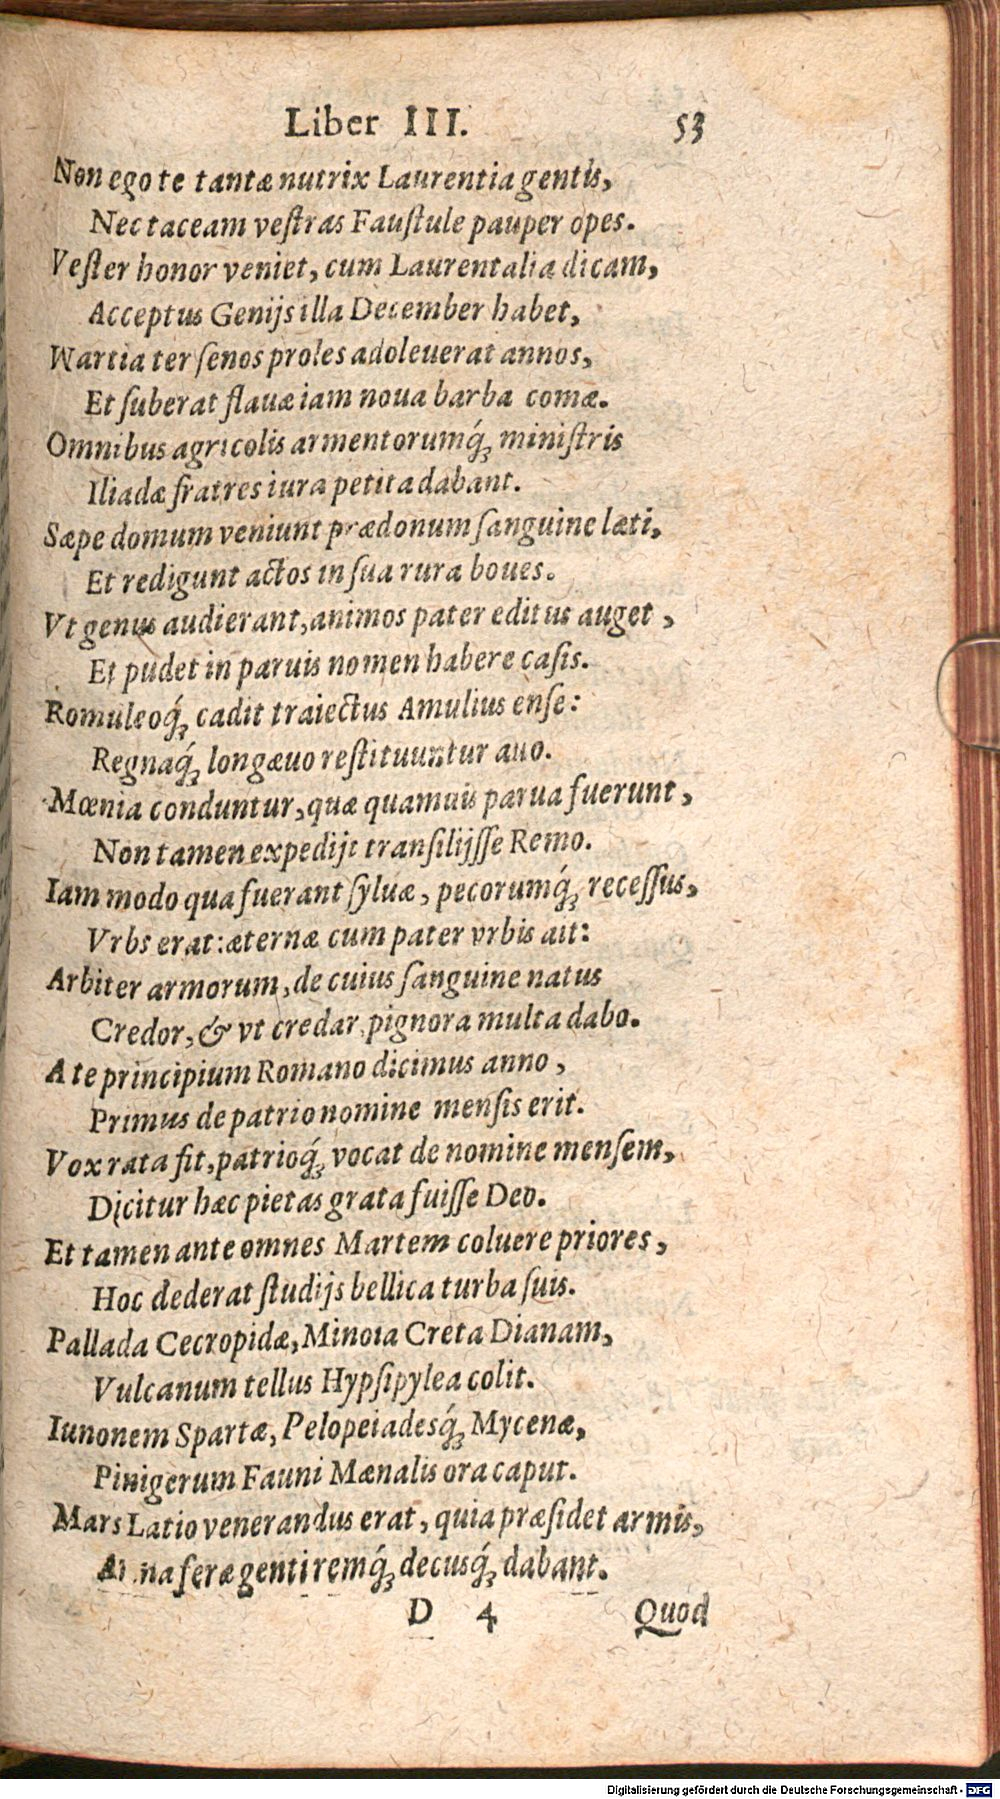 Liber III. 53
Non ego te tantæ nutrix Laurentia gentis,
Nec taceam veſtras Fauſtule pauper opes.
Veſter honor veniet, cum Laurentalia dicam,
Acceptus Genijs illa December habet,
Wartia ter ſenos proles adoleuerat annos,
Et ſuberat flauæ iam noua barba comæ.
Omnibus agricolis armentorumq́; miniſtris
Iliadæ fratres iura petita dabant.
Sæpe domum veniunt prædonum ſanguine læti,
Et redigunt actos in ſua rura boues.
Vt genus audierant, animos pater editus auget,
Et pudet in paruis nomen habere caſis.
Romuleoq́; cadit traiectus Amulius enſe:
Regnaq́; longæuo reſtituuntur auo.
Mœnia conduntur, quæ quamuis parua fuerunt,
Non tamen expedijt tranſilijſſe Remo.
Iam modo qua fuerant ſyluæ, pecorumq́; receſſus,
Vrbs erat: æternæ cum pater vrbis ait:
Arbiter armorum, de cuius ſanguine natus
Credor, & vt credar pignora multa dabo.
A te principium Romano dicimus anno,
Primus de patrio nomine menſis erit.
Vox rata fit, patrioq́; vocat de nomine menſem,
Dicitur hæc pietas grata fuiſſe Deo.
Et tamen ante omnes Martem coluere priores,
Hoc dederat ſtudijs bellica turba ſuis.
Pallada Cecropidæ, Minoia Creta Dianam,
Vulcanum tellus Hypſipylea colit.
Iunonem Spartæ, Pelopeiadesq́; Mycenæ,
Pinigerum Fauni Mænalis ora caput.
Mars Latio venerandus erat, quia præſidet armis,
Arma feræ genti remq́; decusq́; dabant.
D 4 Quod
Digitalisierung gefördert durch die Deutsche Forschungsgemeinschaft - DFG